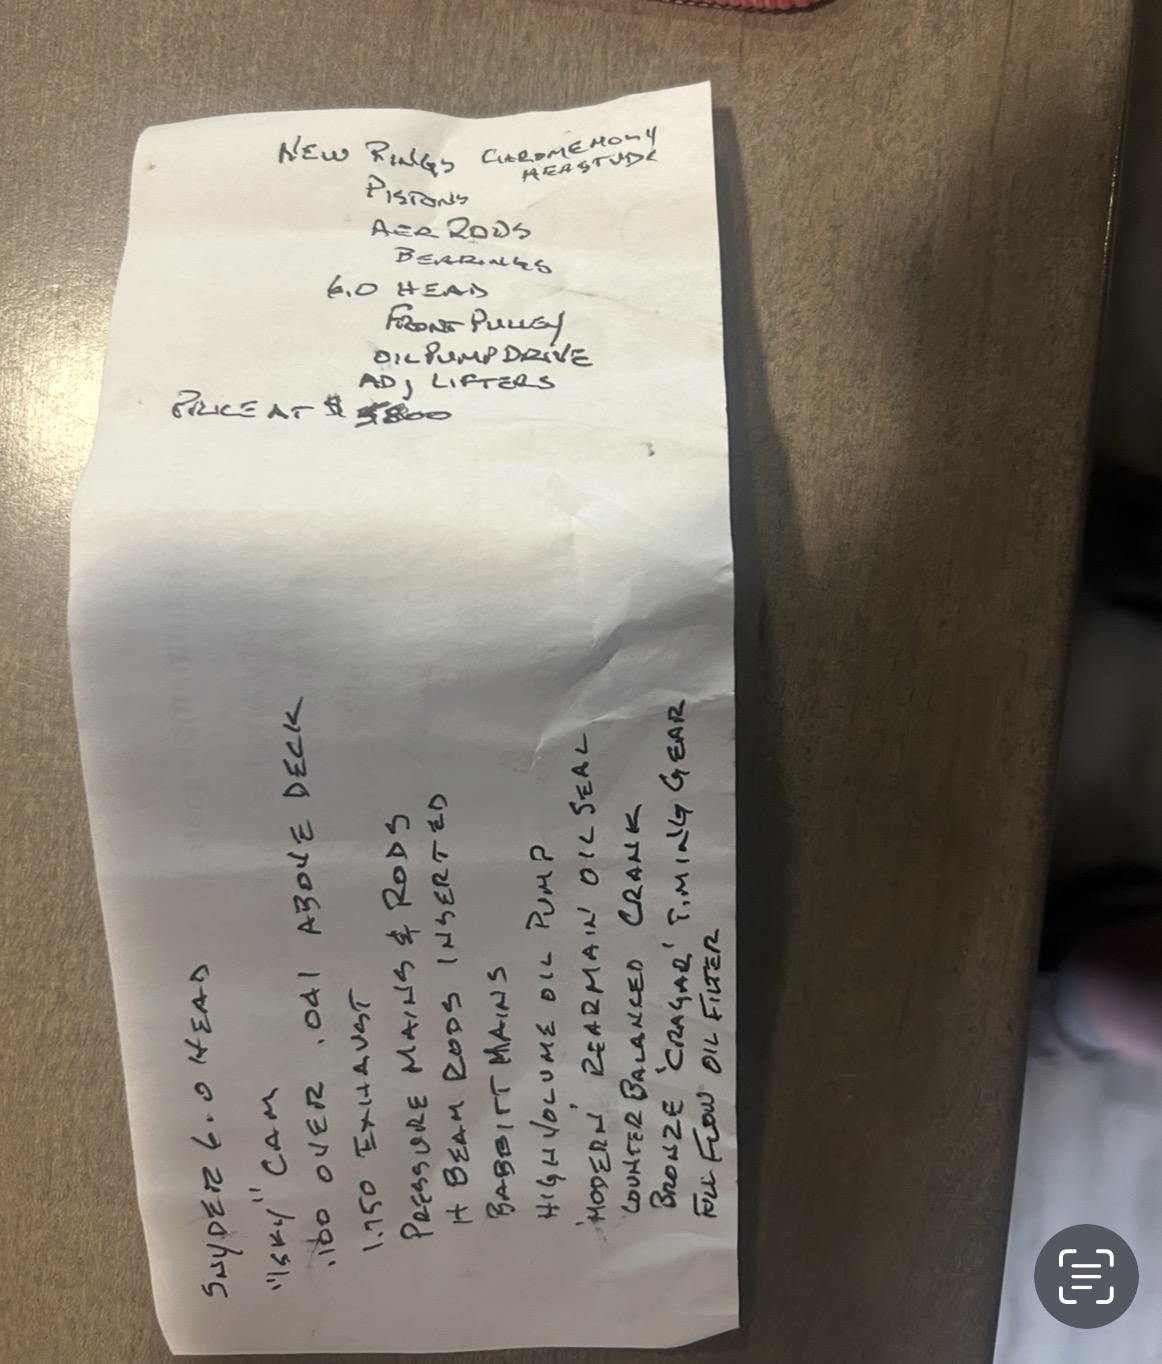 NEW RINGS CHROMEMOLY
HEADSTUDS
PISTONS
AER RODS
BERRINGS
6.0 HEAD
FRONT PULLEY
OIL PUMP DRIVE
ADJ LIFTERS
PRICE AT $ 5800
SNYDER 6.0 HEAD
"ISKY" CAM
.100 OVER .041 ABOVE DECK
1.750 EXHAUST
PRESSURE MAINS & RODS
H BEAM RODS INSERTED
BABBITT MAINS
HIGH VOLUME OIL PUMP
'MODERN' REARMAIN OIL SEAL
COUNTER BALANCED CRANK
BRONZE 'CRAGAR' TIMING GEAR
FULL FLOW OIL FILTER